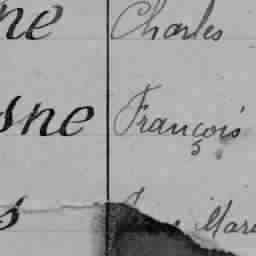 ne Charles
sne François
s Mar